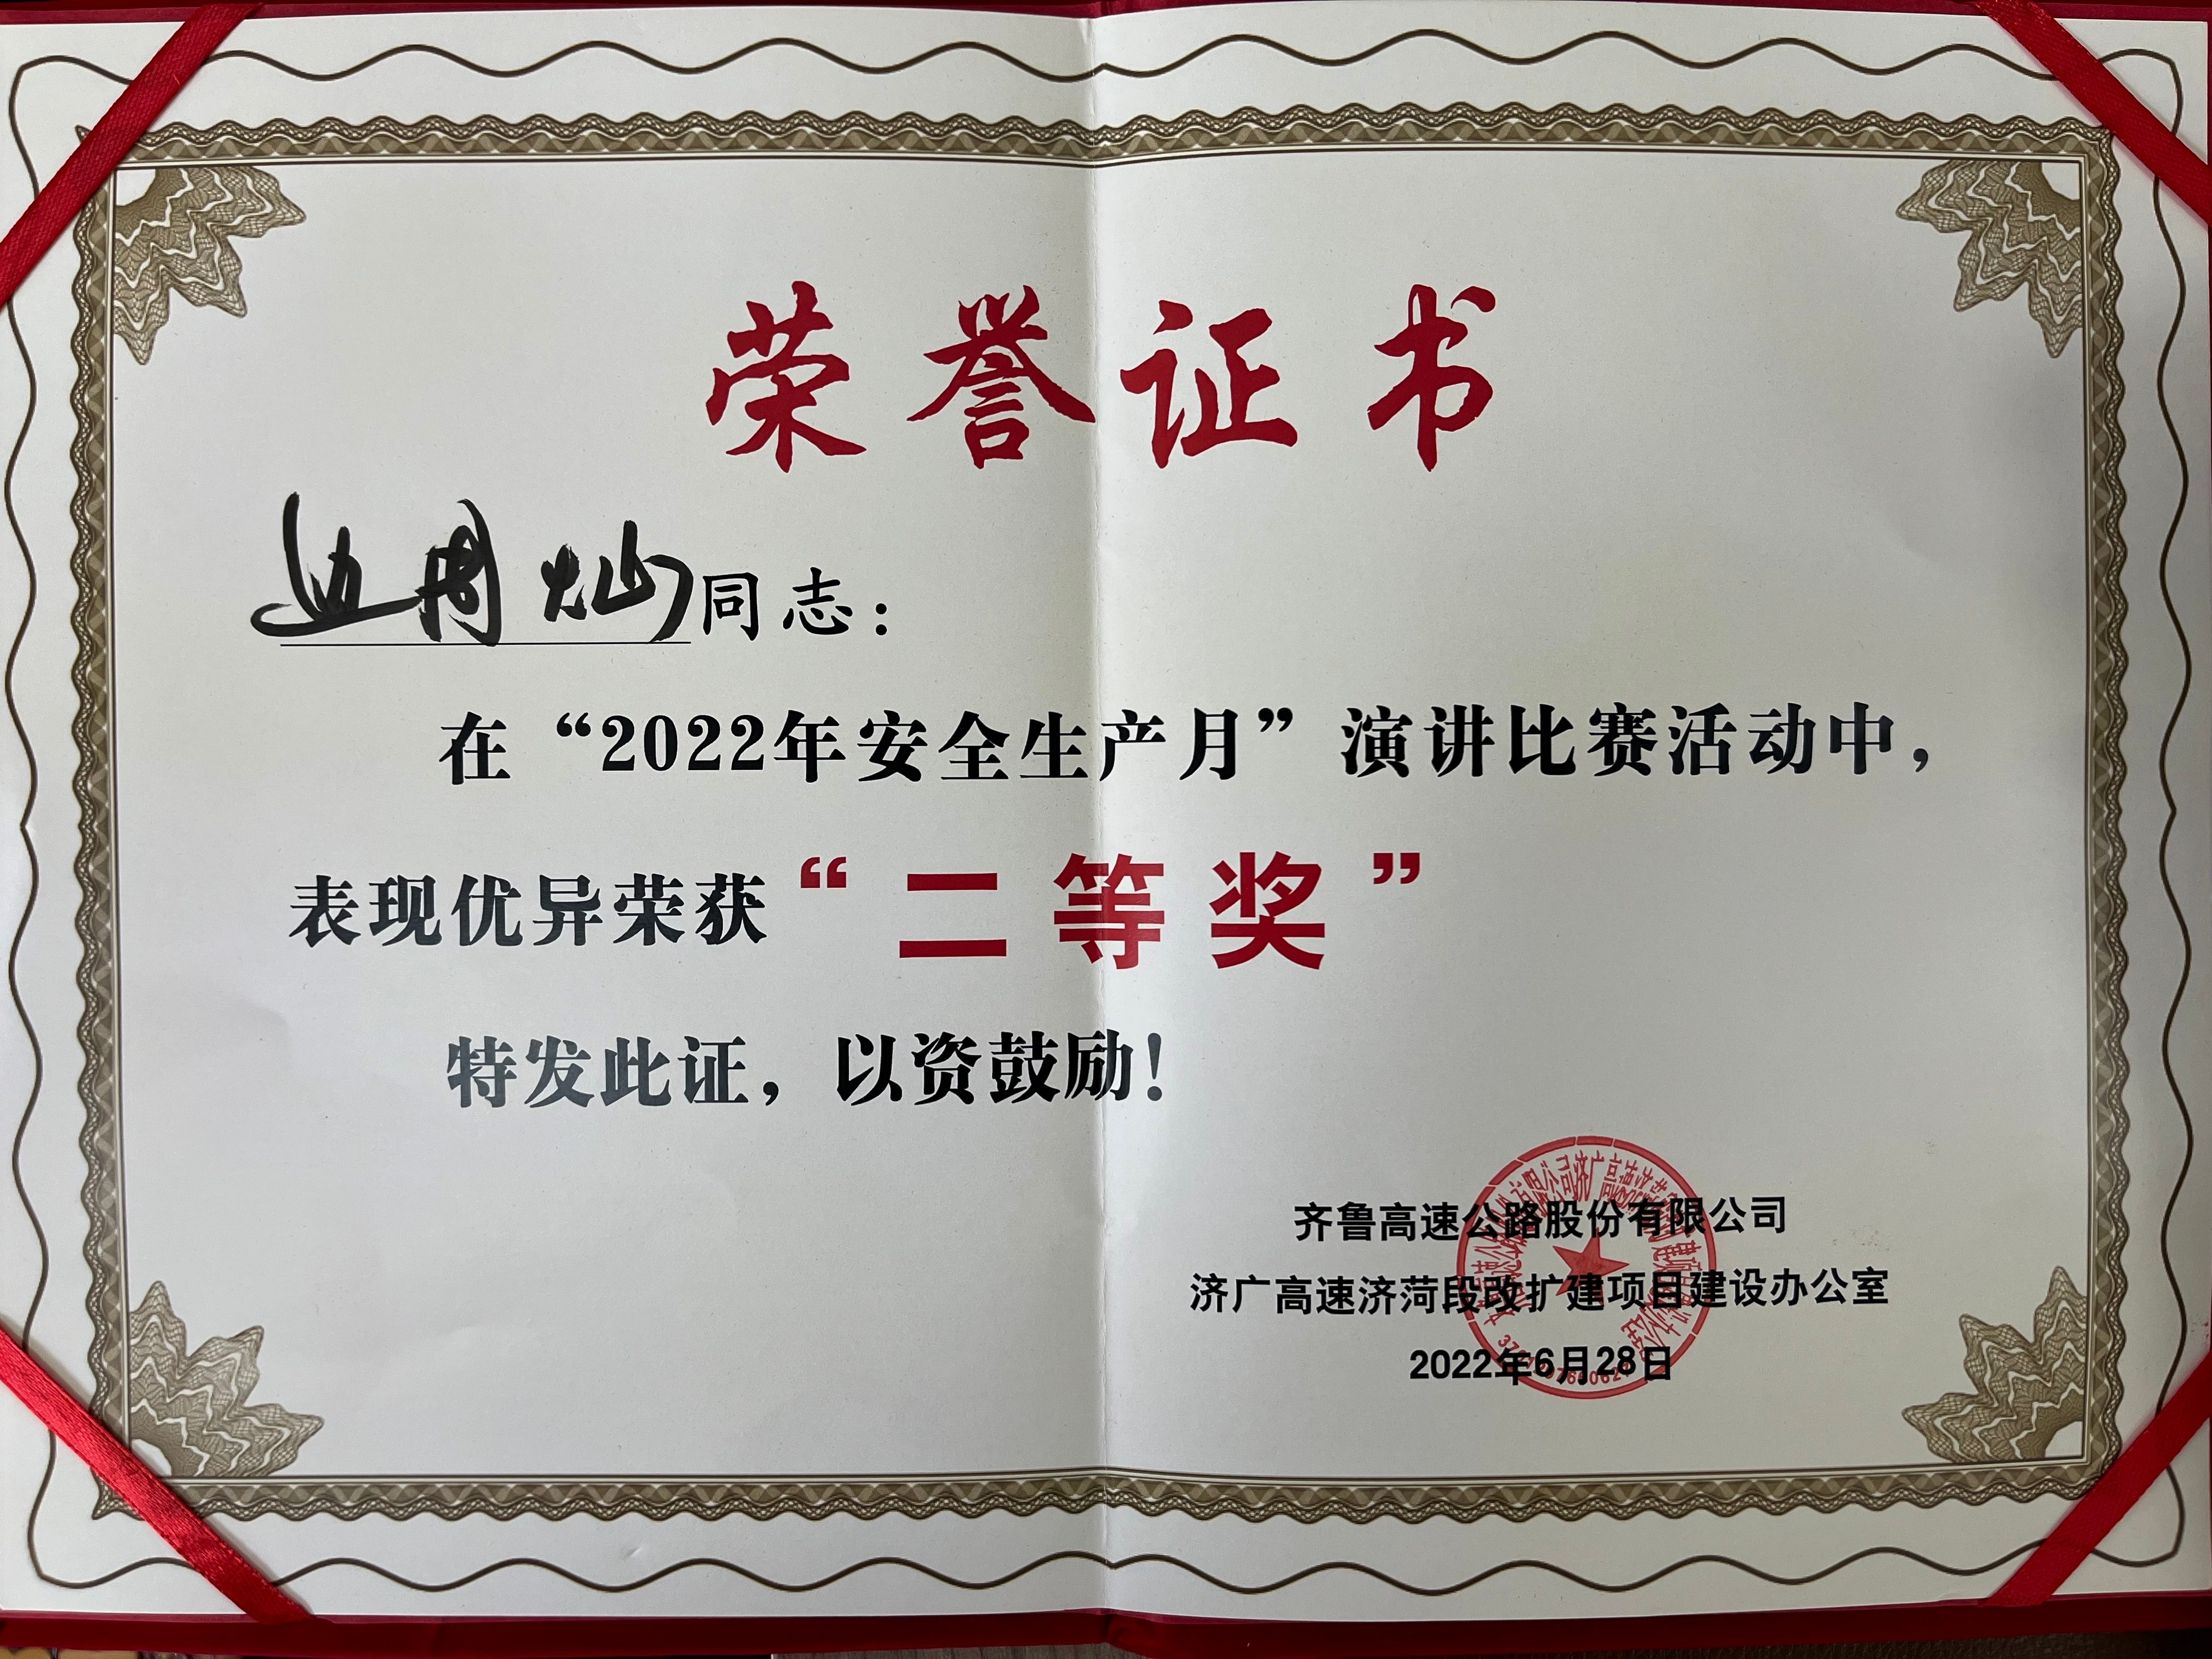 荣誉证书
边周灿同志：
在“2022年安全生产月”演讲比赛活动中，
表现优异荣获“二等奖”
特发此证，以资鼓励！
齐鲁高速公路股份有限公司
济广高速济菏段改扩建项目建设办公室
2022年6月28日